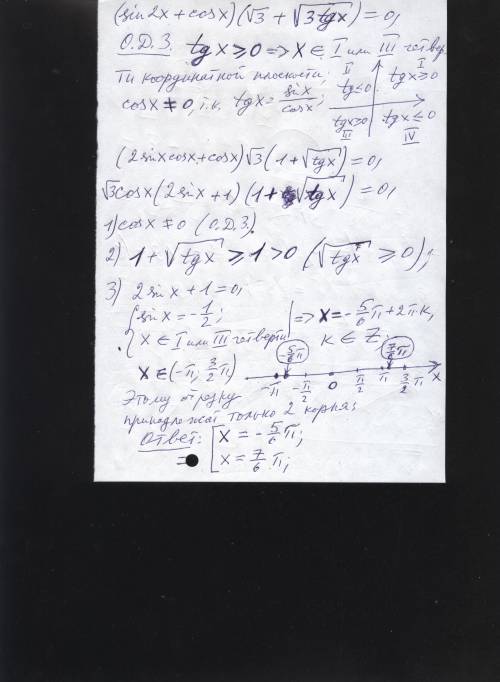 (sin2x + cosx)(√3 + √3tgx) = 0,
О.Д.З. tgx ≥ 0 => x ∈ I или III четвер
ти координатной плоскости;
cosx ≠ 0, т.к. tgx = sinx/cosx;
II tg ≤ 0 I tgx ≥ 0
tgx ≥ 0 III tgx ≤ 0 IV
(2sinxcosx + cosx)√3(1 + √tgx) = 0,
√3cosx(2sinx + 1)(1 + √tgx) = 0,
1) cosx ≠ 0 (О.Д.З.)
2) 1 + √tgx ≥ 1 > 0 (√tgx ≥ 0);
3) 2sinx + 1 = 0,
{ sinx = -1/2; => x = -5/6 π + 2π·k,
x ∈ I или III четверти k ∈ Z.
-5/6 π 7/6 π
x ∈ (-π; 3/2 π)
-π -π/2 0 π/2 π 3/2 π x
Этому отрезку
принадлежат только 2 корня:
Ответ: [ x = -5/6 π;
x = 7/6 π;